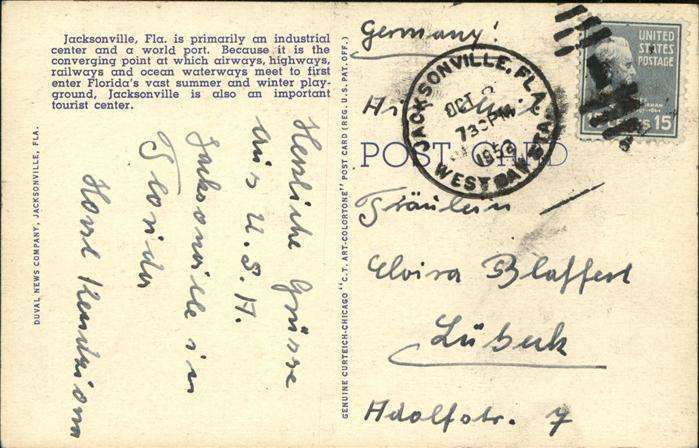 Jacksonville, Fla. is primarily an industrial
center and a world port. Because it is the
converging point at which airways, highways,
railways and ocean waterways meet to first
enter Florida's vast summer and winter play-
ground, Jacksonville is also an important
tourist center.
DUVAL NEWS COMPANY, JACKSONVILLE, FLA.
Herzliche Grüsse
aus U.S.A.
Jacksonville in
Florida
Horst
GENUINE CURTEICH-CHICAGO "C.T. ART-COLORTONE" POST CARD (REG. U.S. PAT. OFF.)
Germany!
JACKSONVILLE, FLA.
OCT
730PM
WEST BAY STA.
UNITED
STATES
POSTAGE
15
POST CARD
Fräulein
Elvira Blaffert
Lübeck
Adolfstr. 7